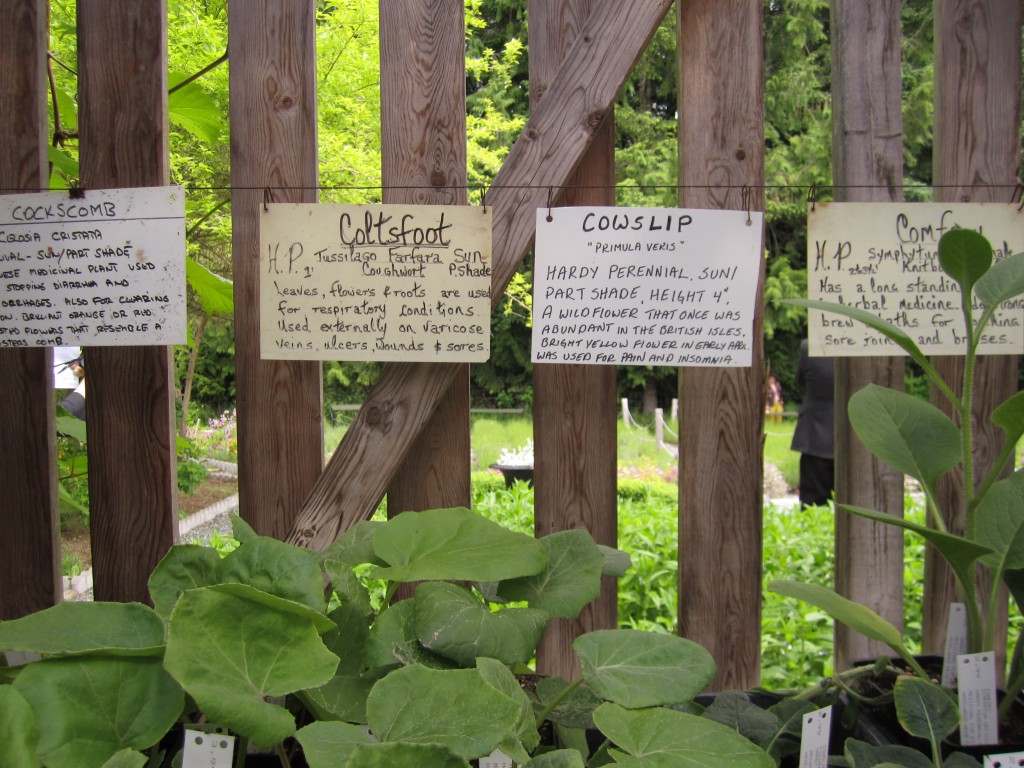 COCKSCOMB
CRISTATA
SUN/PART SHADE
MEDICINAL PLANT USED
STOPPING DIARRHEA AND
ALSO FOR CLEARING
BRILIANT ORANGE OR RED
FLOWERS THAT RESEMBLE A
COMB
Coltsfoot
H.P. Tussilago Farfara Sun
1' Coughwort P.Shade
Leaves, flowers & roots are used
for respiratory conditions.
Used externally on varicose
veins, ulcers, wounds & sores.
COWSLIP
"PRIMULA VERIS"
HARDY PERENNIAL, SUN/
PART SHADE, HEIGHT 4"
A WILDFLOWER THAT ONCE WAS
ABUNDANT IN THE BRITISH ISLES.
BRIGHT YELLOW FLOWER IN EARLY APR.
WAS USED FOR PAIN AND INSOMNIA.
H.P. Symphytum
Has a long standing
herbal medicine
brew
sore joints and bruises.